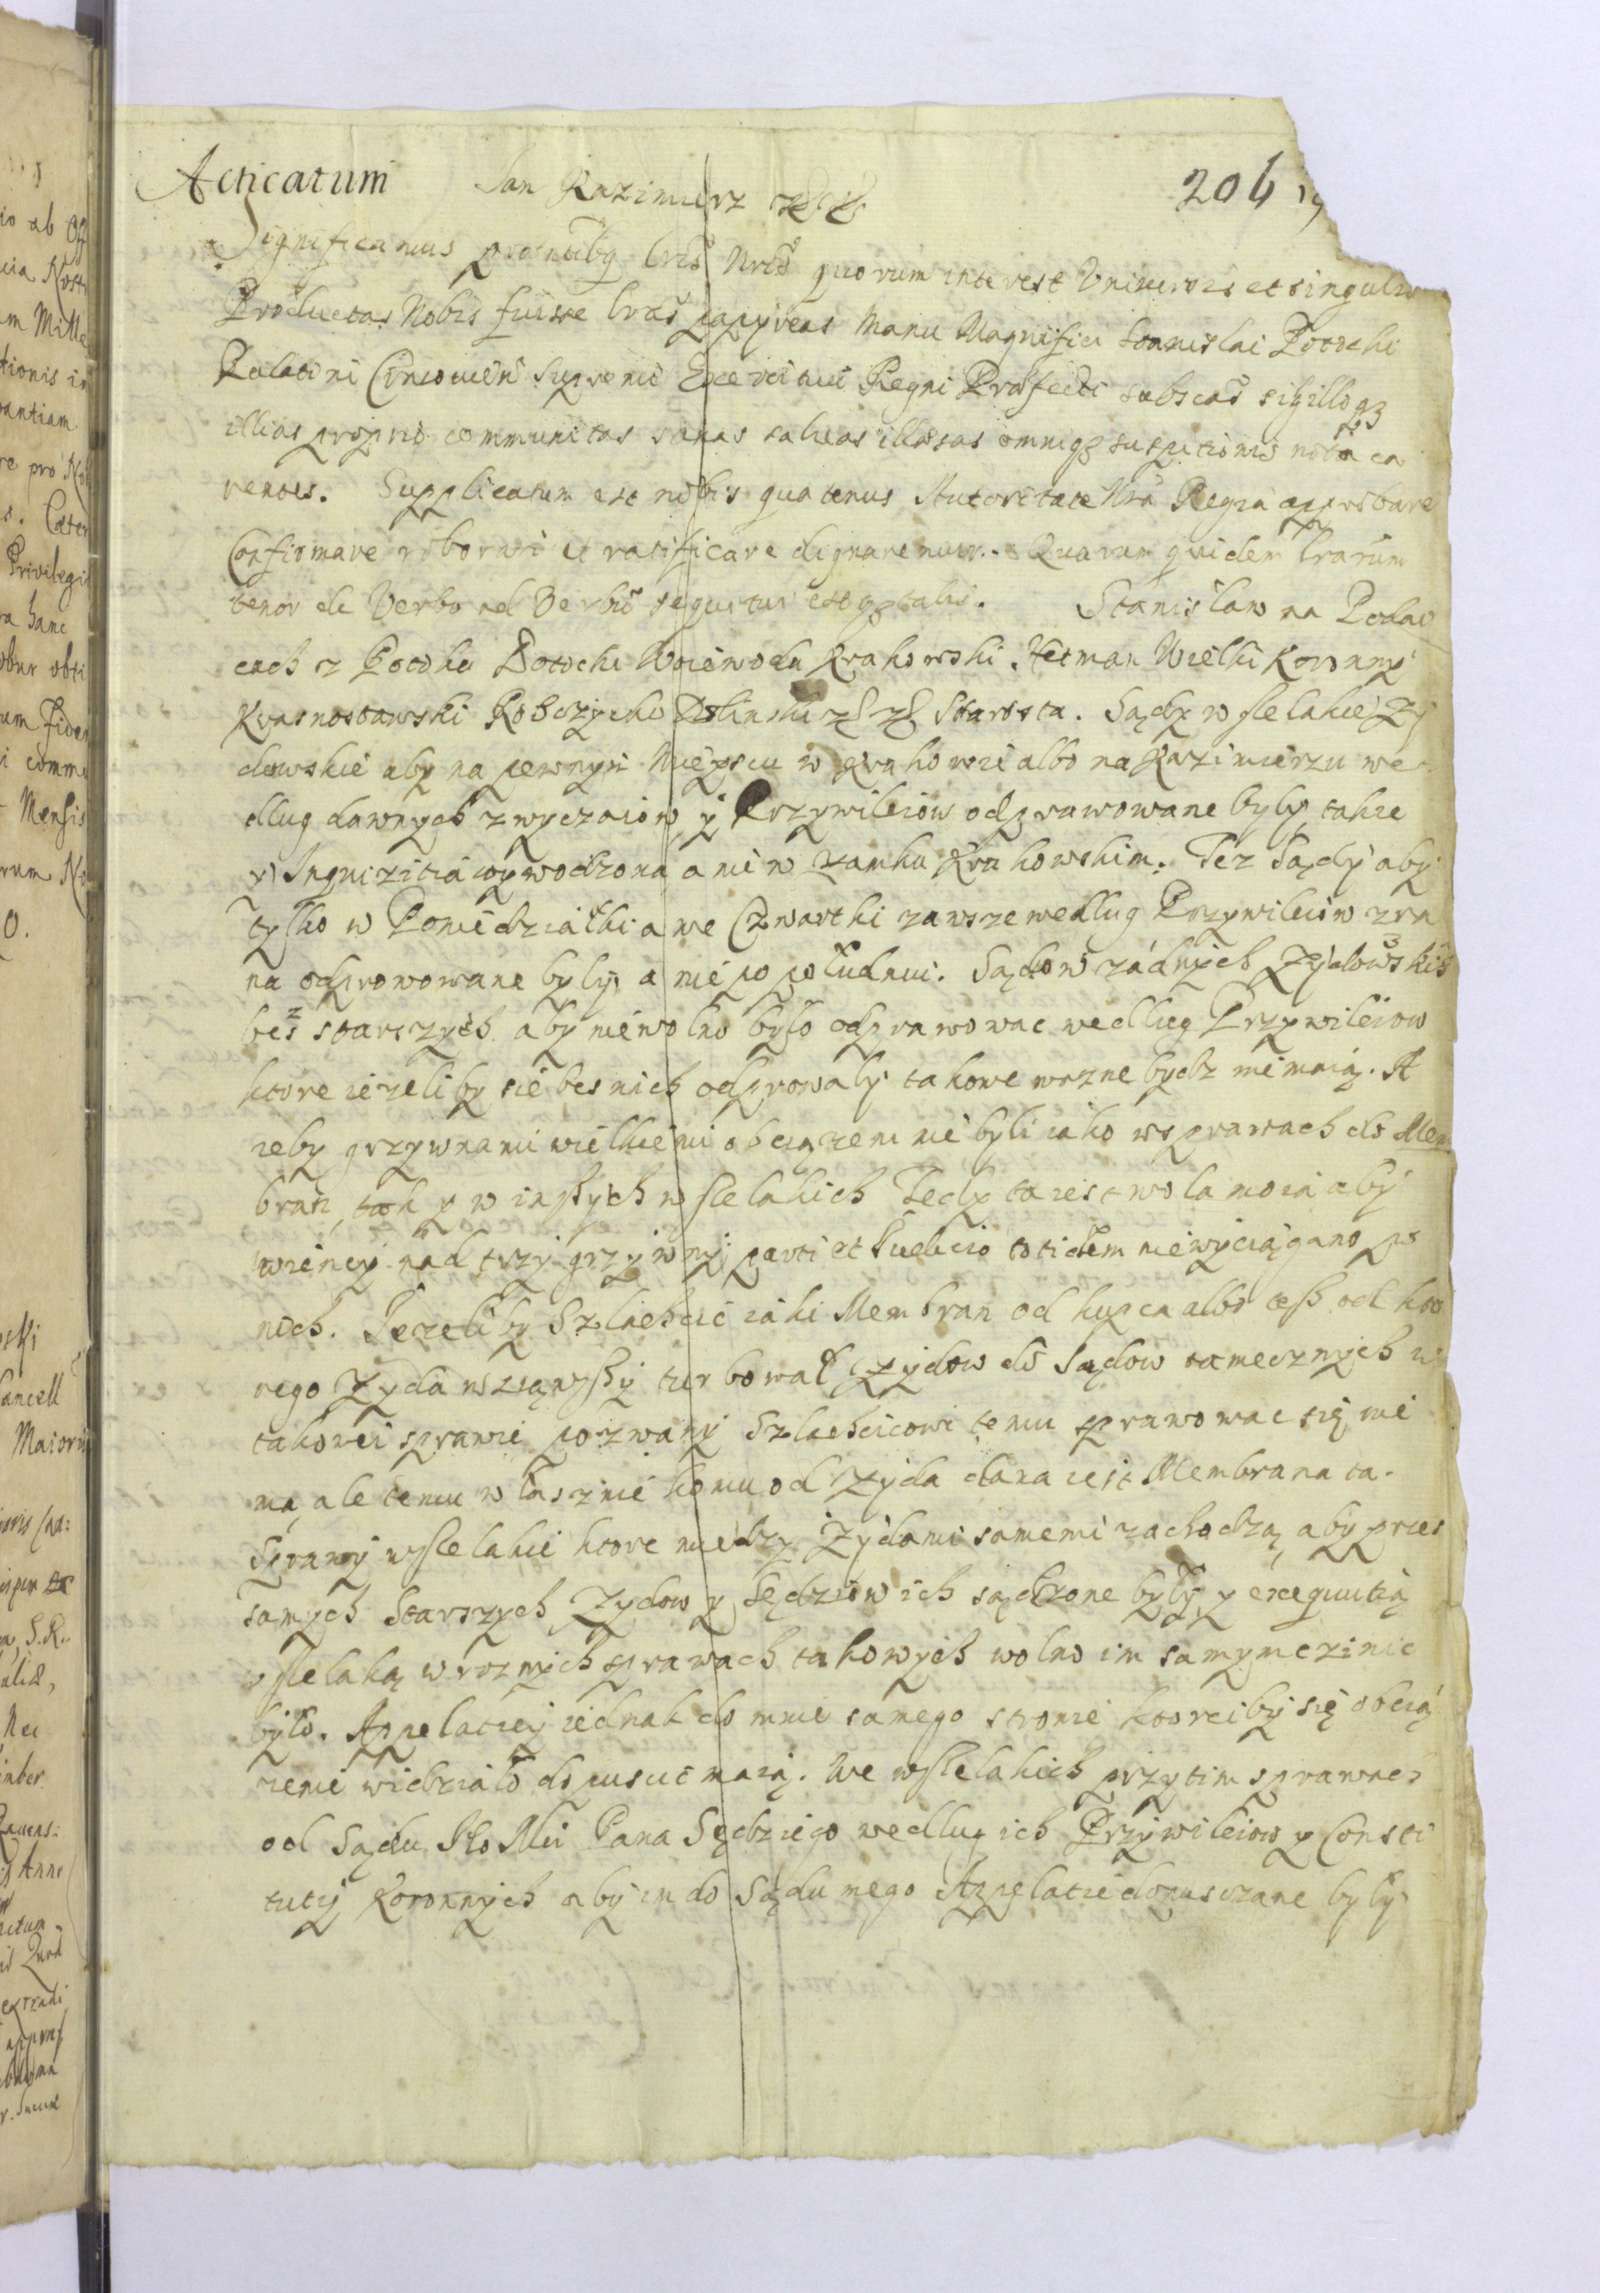 Acticatum Jan Kazimierz
206
Significamus pntibus lris nris quorum interest Universis et singulis
Productas Nobis fuisse lras papyreas Manu Magnifici Stanislai Potocki
Palatini Cracovien Supremi Exercituu Regni Praefecti subscas sigilloq3
illius proprio communitas sanas salvas illaesas omniq3 suspitionis nota ca
rentes. Supplicatum est nobis quatenus Autoritate Nra Regia approbare
Confirmare roborari et ratificare dignaremur. Quarum quidem lrarum
tenor de Verbo ad Verbu sequitur estq3 talis. Stanislaw na Podhay
cach z Potoka Potocki Woiewoda Krakowski Hetman Wielki Koronny
Krasnostawski Robczycki Dolinski Starosta. Sądy wszelakie Zy
dowskie aby na pewnym Mieyscu w Krakowie albo na Kazimierzu we
dlug dawnych zwyczaiow y Przywileiow odprawowane byly, takze
y Inquizitia wywodzona a nie w Zamku Krakowskim. Tez Sądy aby
tylko w Poniedzialki a we Czwartki zawsze wedlug Przywileiow zra
na odprowowane byly, a nie po poludniu. Sądow zadnych Zydowskich
bez starszych aby niewolno bylo odprawowac wedlug Przywileiow
ktore iezeliby sie bes nich odprowaly takowe wazne bydz nie maią. A
zeby grzywnami wielkiemi obciązeni nie byli iako w sprawach do Mem
bran, tak y w inszych wszelakich Tedy ta iest wola moia aby
wiency nad trzy grzywny parti et Iudicio totidem niewyciągano po
nich. Iezeliby Szlachcic iaki Membran od kupca albo tesz od kto
rego Zyda wziąwszy turbowal Zydow do Sądow tamecznych w
takowei sprawie pozwany Szlachcicowi temu sprawowac się nie
ma, ale temu wlasznie komu od Zyda dana iest Membrana ta.
Sprawy wszelakie ktore miedzy Zydami samemi zachodzą, aby przes
samych Starszych Zydow y Sędziow ich sądzone byly, y exequutią
wszelaką w roznych sprawach takowych wolno im samym czinic
bylo. Appelatiey iednak do mnie samego stronie ktoreiby się obcią
zenie widzialo dopuscic maią. We wszelakich przytim sprawach
od Sądu Pana Sędziego wedlug ich Przywileiow y Consti
tuciy Koronnych aby im do Sądu mego Appelatie dopusczane byly